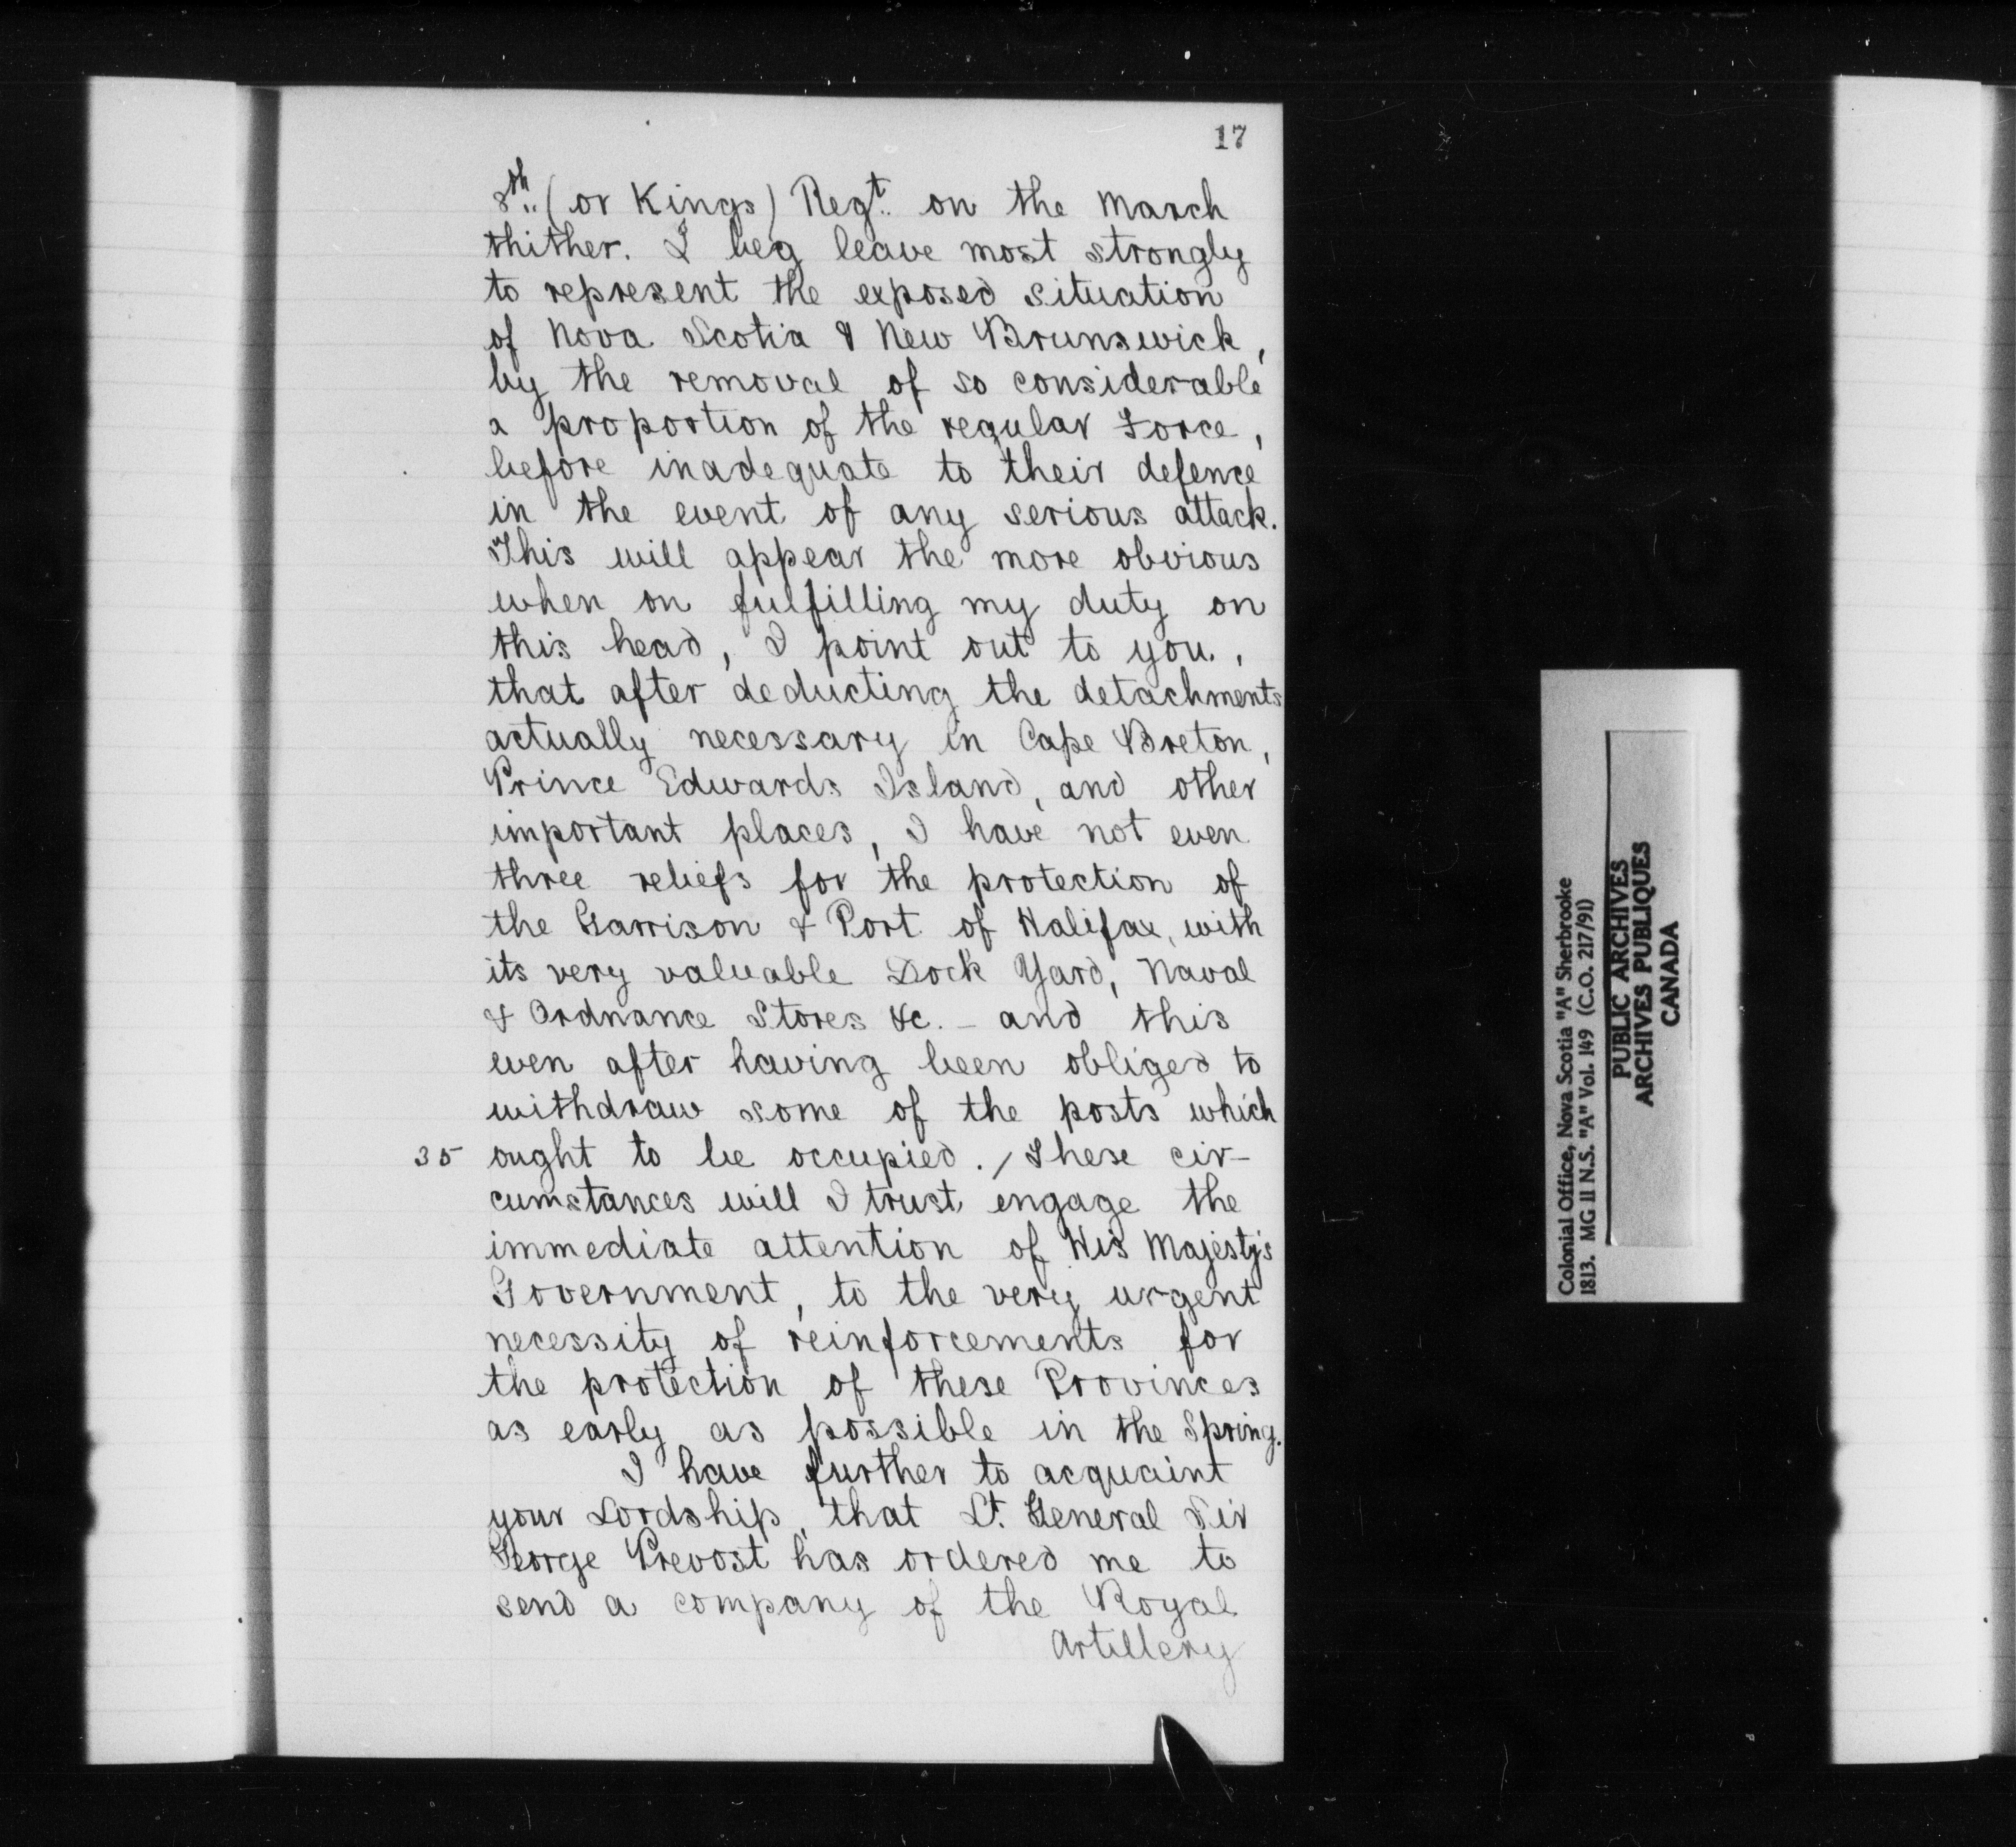 17
8th (or Kings) Regt. on the March
thither. I beg leave most strongly
to represent the exposed situation
of Nova Scotia & New Brunswick,
by the removal of so considerable
a proportion of the regular Force,
before inadequate to their defence
in the event of any serious attack.
This will appear the more obvious
when on fulfilling my duty on
this head, I point out to you.,
that after deducting the detachments
actually necessary in Cape Breton,
Prince Edwards Island, and other
important places, I have not even
three reliefs for the protection of
the Garrison & Port of Halifax, with
its very valuable Dock Yard, Naval
& Ordnance Stores &c. - and this
even after having been obliged to
withdraw some of the posts which
35 ought to be occupied. / These cir-
cumstances will I trust engage the
immediate attention of His Majesty's
Government, to the very urgent
necessity of reinforcements for
the protection of these Provinces
as early as possible in the Spring.
I have further to acquaint
your Lordship, that Lt. General Sir
George Prevost has ordered me to
send a company of the Royal
Artillery
Colonial Office, Nova Scotia "A" Sherbrooke
1813. MG 11 N.S. "A" Vol. 149 (C.O. 217/91)
PUBLIC ARCHIVES
ARCHIVES PUBLIQUES
CANADA